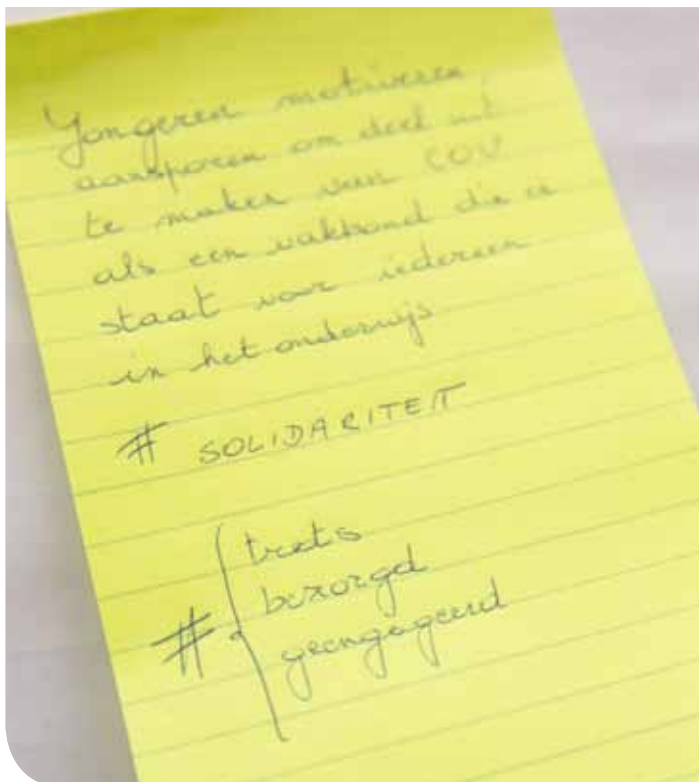 Jongeren motiveren,
aansporen om deel uit
te maken van COV
als een vakbond die er
staat voor iedereen
in het onderwijs
# SOLIDARITEIT
# { trots
bezorgd
geengageerd